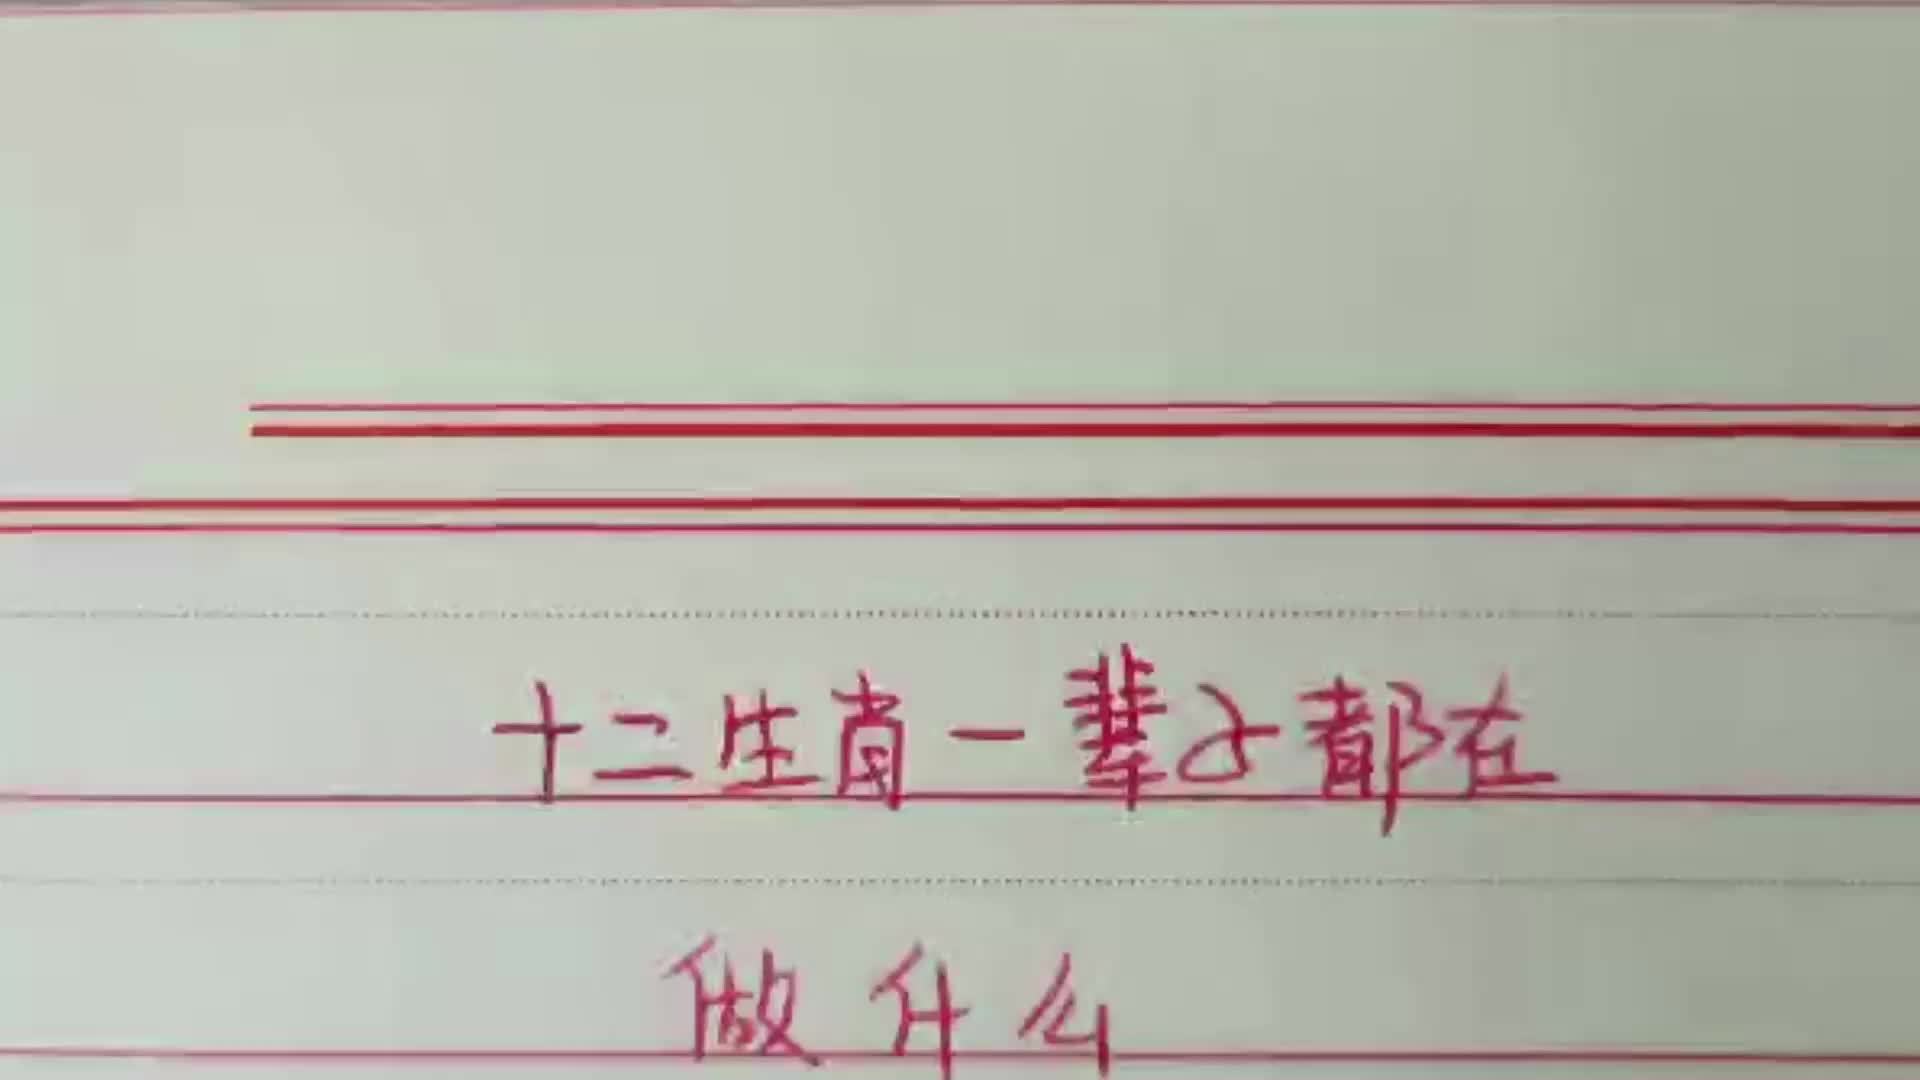 十二生肖一辈子都在
做什么